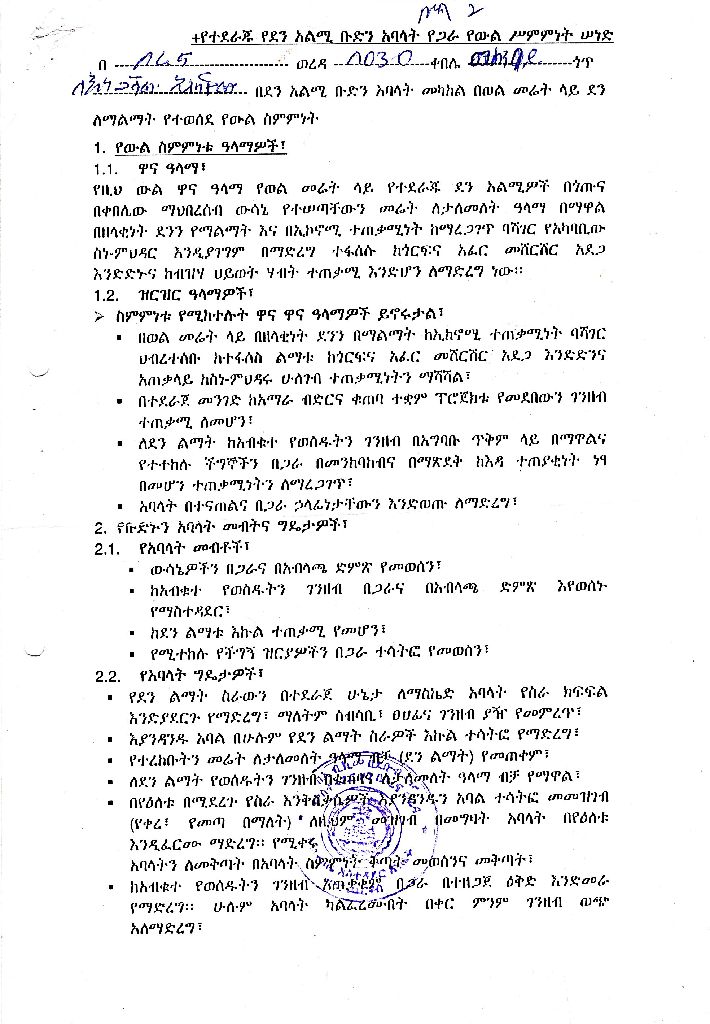 +የተደራጁ የደን አልሚ ቡድን አባላት የጋራ የውል ሥምምነት ሠነድ
በ ወረዳ ቀበሌ ጎጥ
በደን አልሚ ቡድን አባላት መካከል በወል መሬት ላይ ደን
ለማልማት የተወሰደ የውል ስምምነት
1. የውል ስምምነቱ ዓላማዎች፤
1.1. ዋና ዓላማ፤
የዚህ ውል ዋና ዓላማ የወል መሬት ላይ የተደራጁ ደን አልሚዎች በጎጡና
በቀበሌው ማህበረሰብ ውሳኔ የተሠጣቸውን መሬት ለታለመለት ዓላማ በማዋል
በዘላቂነት ደንን የማልማት እና በኢኮኖሚ ተጠቃሚነት ከማረጋገጥ ባሻገር የአካባቢው
ስነ-ምህዳር እንዲያገግም በማድረግ ተፋሰሱ ከጎርፍና አፈር መሸርሸር አደጋ
እንድድኑና ከብዝሃ ህይወት ሃብት ተጠቃሚ እንድሆን ለማድረግ ነው።
1.2. ዝርዝር ዓላማዎች፤
➢ ስምምነቱ የሚከተሉት ዋና ዋና ዓላማዎች ይኖሩታል፤
▪ በወል መሬት ላይ በዘላቂነት ደንን በማልማት ከኢኮኖሚ ተጠቃሚነት ባሻገር
ህብረተሰቡ ከተፋሰስ ልማቱ ከጎርፍና አፈር መሸርሸር አደጋ እንድድንና
አጠቃላይ ከስነ-ምህዳሩ ሁለገብ ተጠቃሚነትን ማሻሻል፤
▪ በተደራጀ መንገድ ከአማራ ብድርና ቁጠባ ተቋም ፕሮጀክቱ የመደበውን ገንዘብ
ተጠቃሚ ለመሆን፤
▪ ለደን ልማት ከአብቁተ የወሰዱትን ገንዘብ በአግባቡ ጥቅም ላይ በማዋልና
የተተከሉ ችግኞችን በጋራ በመንከባከብና በማጽደቅ ከእዳ ተጠያቂነት ነፃ
በመሆን ተጠቃሚነትን ለማረጋገጥ፤
▪ አባላት በተናጠልና በጋራ ኃላፊነታቸውን እንድወጡ ለማድረግ፤
2. የቡድኑን አባላት መብትና ግዴታዎች፤
2.1. የአባላት መብቶች፤
▪ ውሳኔዎችን በጋራና በአብላጫ ድምጽ የመወሰን፤
▪ ከአብቁተ የወሰዱትን ገንዘብ በጋራና በአብላጫ ድምጽ እየወሰኑ
የማስተዳደር፤
▪ ከደን ልማቱ እኩል ተጠቃሚ የመሆን፤
▪ የሚተከሉ የችግኝ ዝርያዎችን በጋራ ተሳትፎ የመወሰን፤
2.2. የአባላት ግዴታዎች፤
▪ የደን ልማት ስራውን በተደራጀ ሁኔታ ለማስኬድ አባላት የስራ ክፍፍል
እንድያደርጉ የማድረግ፤ ማለትም ሰብሳቢ፤ ፀሀፊና ገንዘብ ያዥ የመምረጥ፤
▪ እያንዳንዱ አባል በሁሉም የደን ልማት ስራዎች እኩል ተሳትፎ የማድረግ፤
▪ የተረከቡትን መሬት ለታለመለት ዓላማ ብቻ (ደን ልማት) የመጠቀም፤
▪ ለደን ልማት የወሰዱትን ገንዘብ ለታለመለት ዓላማ ብቻ የማዋል፤
▪ በየዕለቱ በሚደረጉ የስራ እንቅስቃሴዎች እያንዳንዱን አባል ተሳትፎ መመዝገብ
(የቀረ፤ የመጣ በማለት) ለዚህም መዝገብ በመግዛት አባላት በየዕለቱ
እንዲፈርሙ ማድረግ። የሚቀሩ
አባላትን ለመቅጣት በአባላት ስምምነት ቅጣት መወሰንና መቅጣት፤
▪ ከአብቁተ የወሰዱትን ገንዘብ አጠቃቀም በጋራ በተዘጋጀ ዕቅድ እንድመራ
የማድረግ። ሁሉም አባላት ካልፈረሙበት በቀር ምንም ገንዘብ ወጭ
አለማድረግ፤